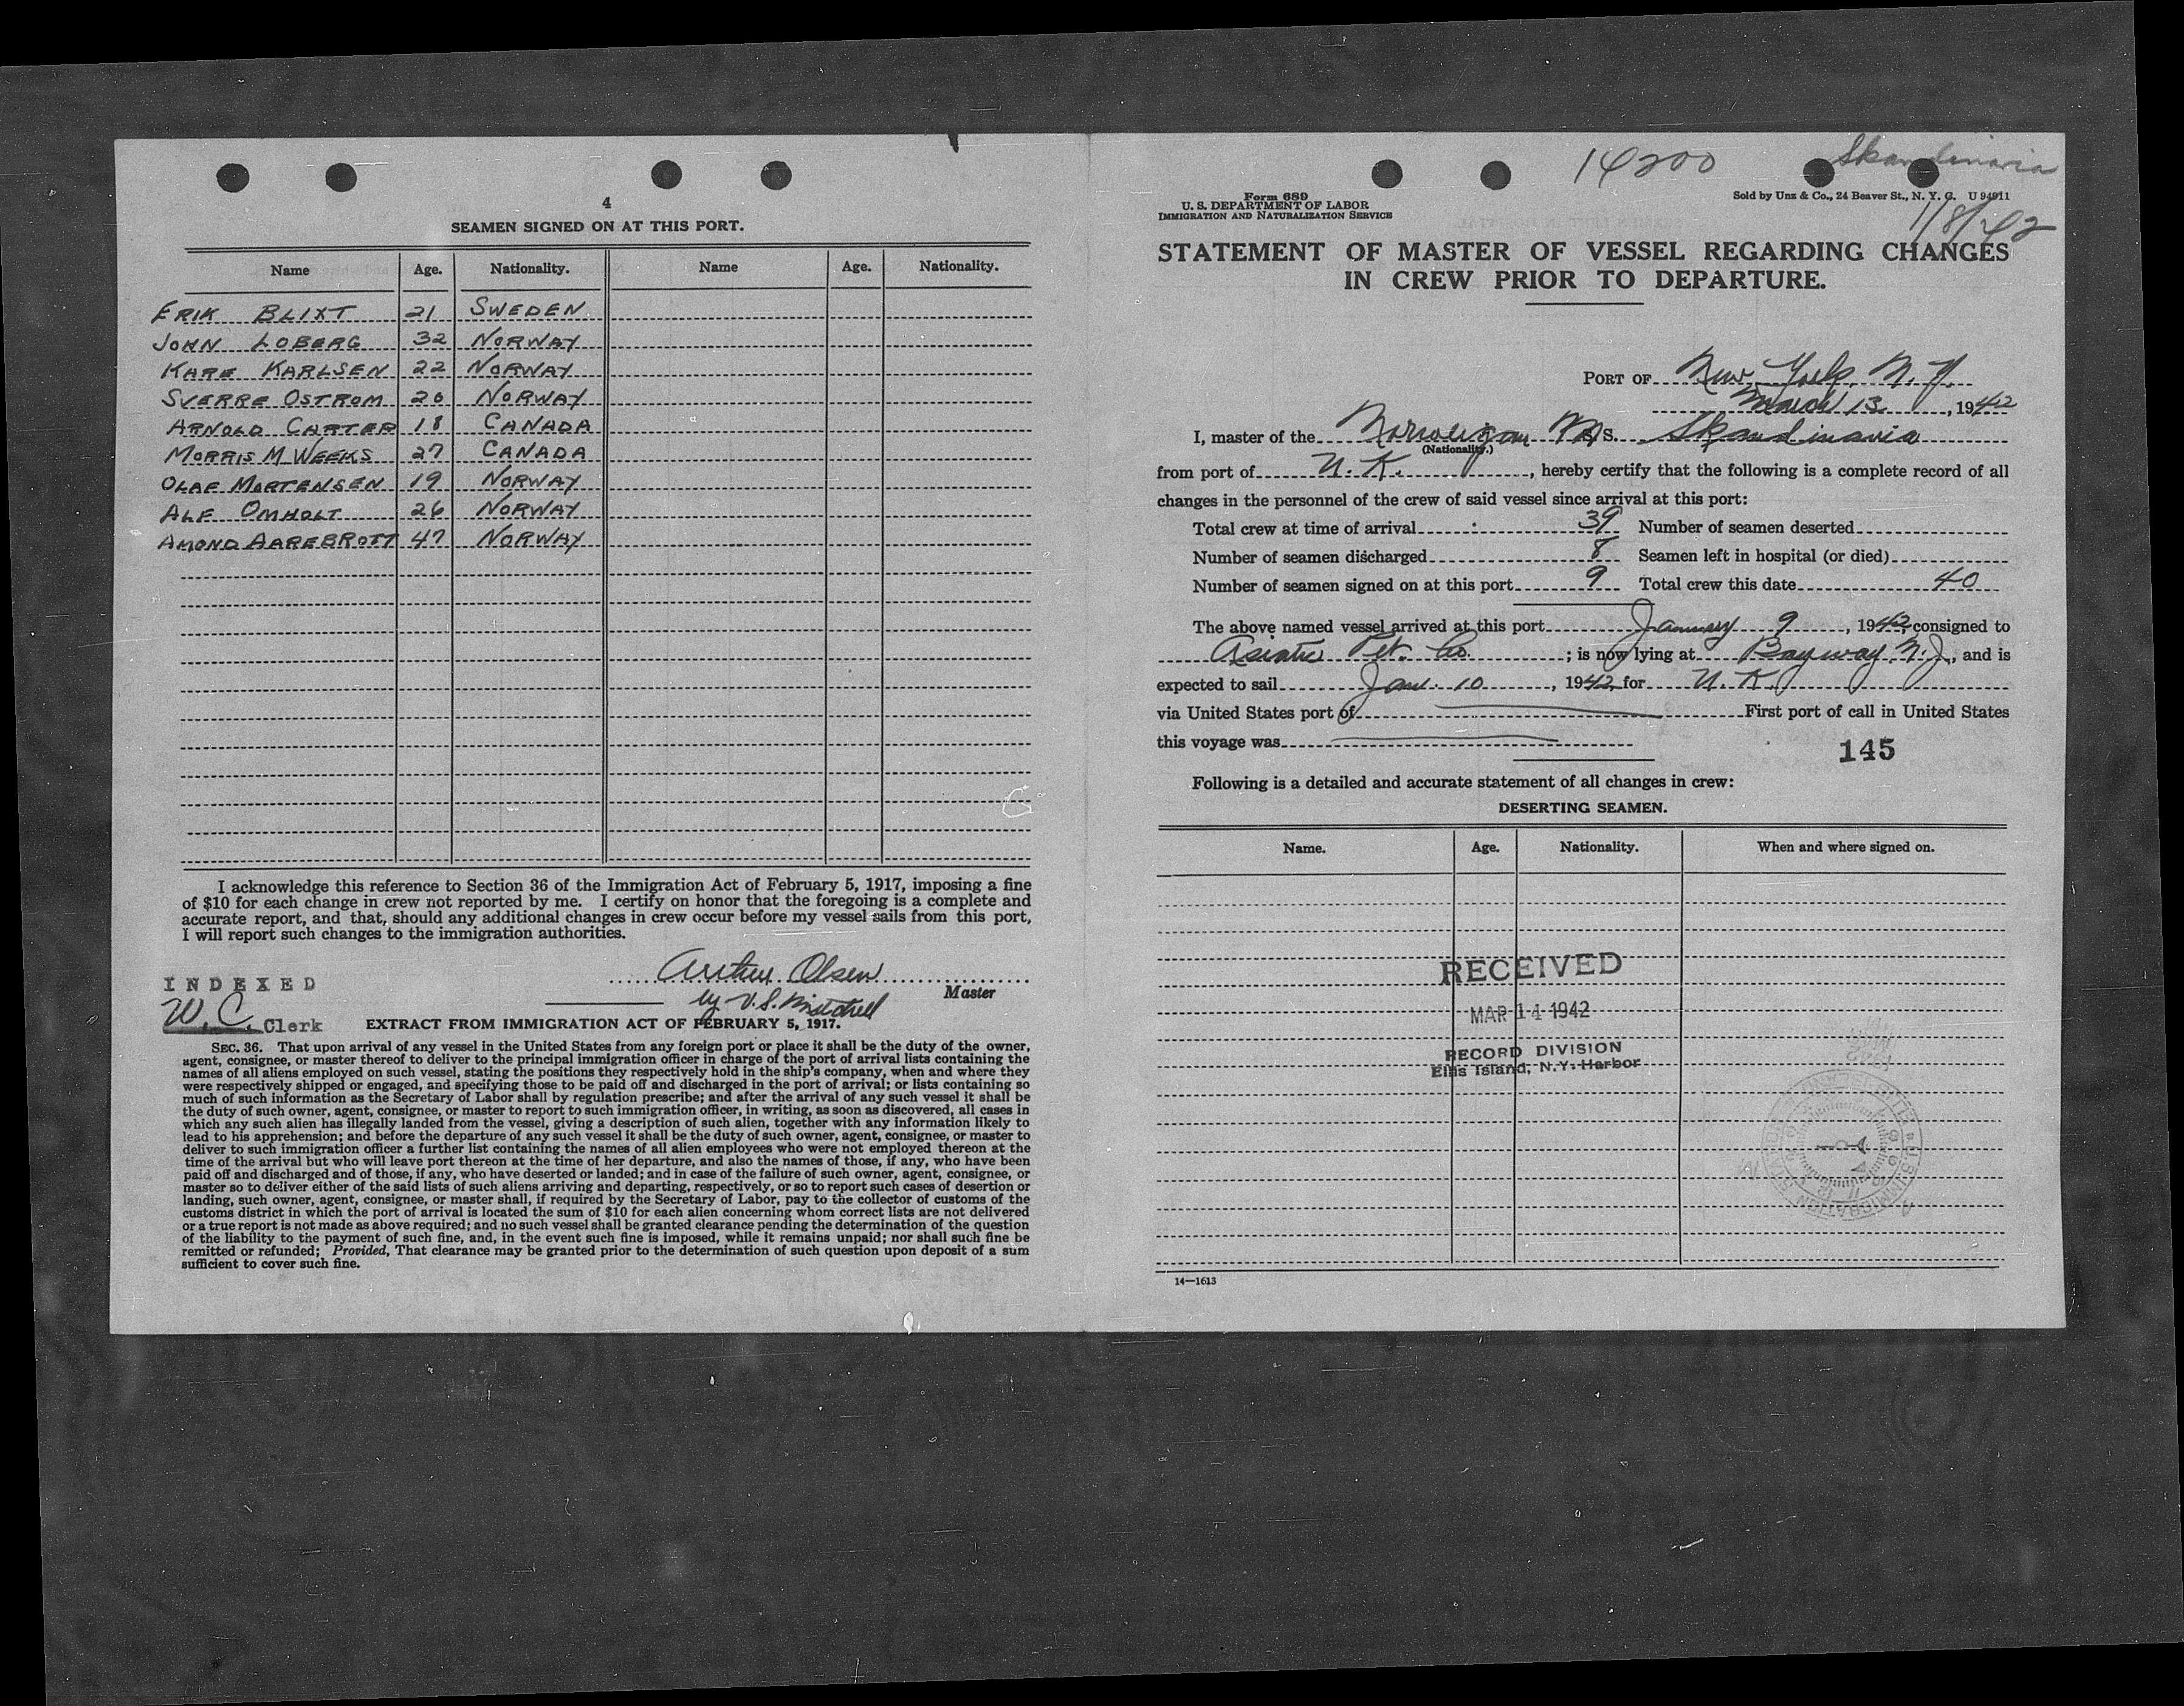 4
SEAMEN SIGNED ON AT THIS PORT.
Name Age. Nationality. Name Age. Nationality.
ERIK BLIXT 21 SWEDEN
JOHN LOBERG 32 NORWAY
KARE KARLSEN 22 NORWAY
SVERRE OSTROM 20 NORWAY
ARNOLD CARTER 18 CANADA
MORRIS M WEEKS 27 CANADA
OLAF MORTENSEN 19 NORWAY
ALF OMHOLT 26 NORWAY
AMOND AAREBROTT 47 NORWAY
I acknowledge this reference to Section 36 of the Immigration Act of February 5, 1917, imposing a fine
of $10 for each change in crew not reported by me. I certify on honor that the foregoing is a complete and
accurate report, and that, should any additional changes in crew occur before my vessel sails from this port,
I will report such changes to the immigration authorities.
Arthur Olsen
Master
by V.S. Mitchell
INDEXED
W. C. Clerk
EXTRACT FROM IMMIGRATION ACT OF FEBRUARY 5, 1917.
SEC. 36. That upon arrival of any vessel in the United States from any foreign port or place it shall be the duty of the owner,
agent, consignee, or master thereof to deliver to the principal immigration officer in charge of the port of arrival lists containing the
names of all aliens employed on such vessel, stating the positions they respectively hold in the ship's company, when and where they
were respectively shipped or engaged, and specifying those to be paid off and discharged in the port of arrival; or lists containing so
much of such information as the Secretary of Labor shall by regulation prescribe; and after the arrival of any such vessel it shall be
the duty of such owner, agent, consignee, or master to report to such immigration officer, in writing, as soon as discovered, all cases in
which any such alien has illegally landed from the vessel, giving a description of such alien, together with any information likely to
lead to his apprehension; and before the departure of any such vessel it shall be the duty of such owner, agent, consignee, or master to
deliver to such immigration officer a further list containing the names of all alien employees who were not employed thereon at the
time of the arrival but who will leave port thereon at the time of her departure, and also the names of those, if any, who have been
paid off and discharged and of those, if any, who have deserted or landed; and in case of the failure of such owner, agent, consignee, or
master so to deliver either of the said lists of such aliens arriving and departing, respectively, or so to report such cases of desertion or
landing, such owner, agent, consignee, or master shall, if required by the Secretary of Labor, pay to the collector of customs of the
customs district in which the port of arrival is located the sum of $10 for each alien concerning whom correct lists are not delivered
or a true report is not made as above required; and no such vessel shall be granted clearance pending the determination of the question
of the liability to the payment of such fine, and, in the event such fine is imposed, while it remains unpaid; nor shall such fine be
remitted or refunded; Provided, That clearance may be granted prior to the determination of such question upon deposit of a sum
sufficient to cover such fine.
14200 Skandinavia
Form 689
U. S. DEPARTMENT OF LABOR
IMMIGRATION AND NATURALIZATION SERVICE
Sold by Unz & Co., 24 Beaver St., N. Y. C. U 94911
1/8/42
STATEMENT OF MASTER OF VESSEL REGARDING CHANGES
IN CREW PRIOR TO DEPARTURE.
PORT OF New York, N.Y.
March 13, 1942
I, master of the Norwegian M/S. Skandinavia
(Nationality.)
from port of U.K., hereby certify that the following is a complete record of all
changes in the personnel of the crew of said vessel since arrival at this port:
Total crew at time of arrival 39 Number of seamen deserted
Number of seamen discharged 8 Seamen left in hospital (or died)
Number of seamen signed on at this port 9 Total crew this date 40
The above named vessel arrived at this port January 9, 1942, consigned to
Asiatic Pet. Co.; is now lying at Bayway, N.J., and is
expected to sail Jan. 10, 1942 for U.K.
via United States port of First port of call in United States
this voyage was
145
Following is a detailed and accurate statement of all changes in crew:
DESERTING SEAMEN.
Name. Age. Nationality. When and where signed on.
RECEIVED
MAR 14 1942
RECORD DIVISION
Ellis Island, N.Y. Harbor
14—1613